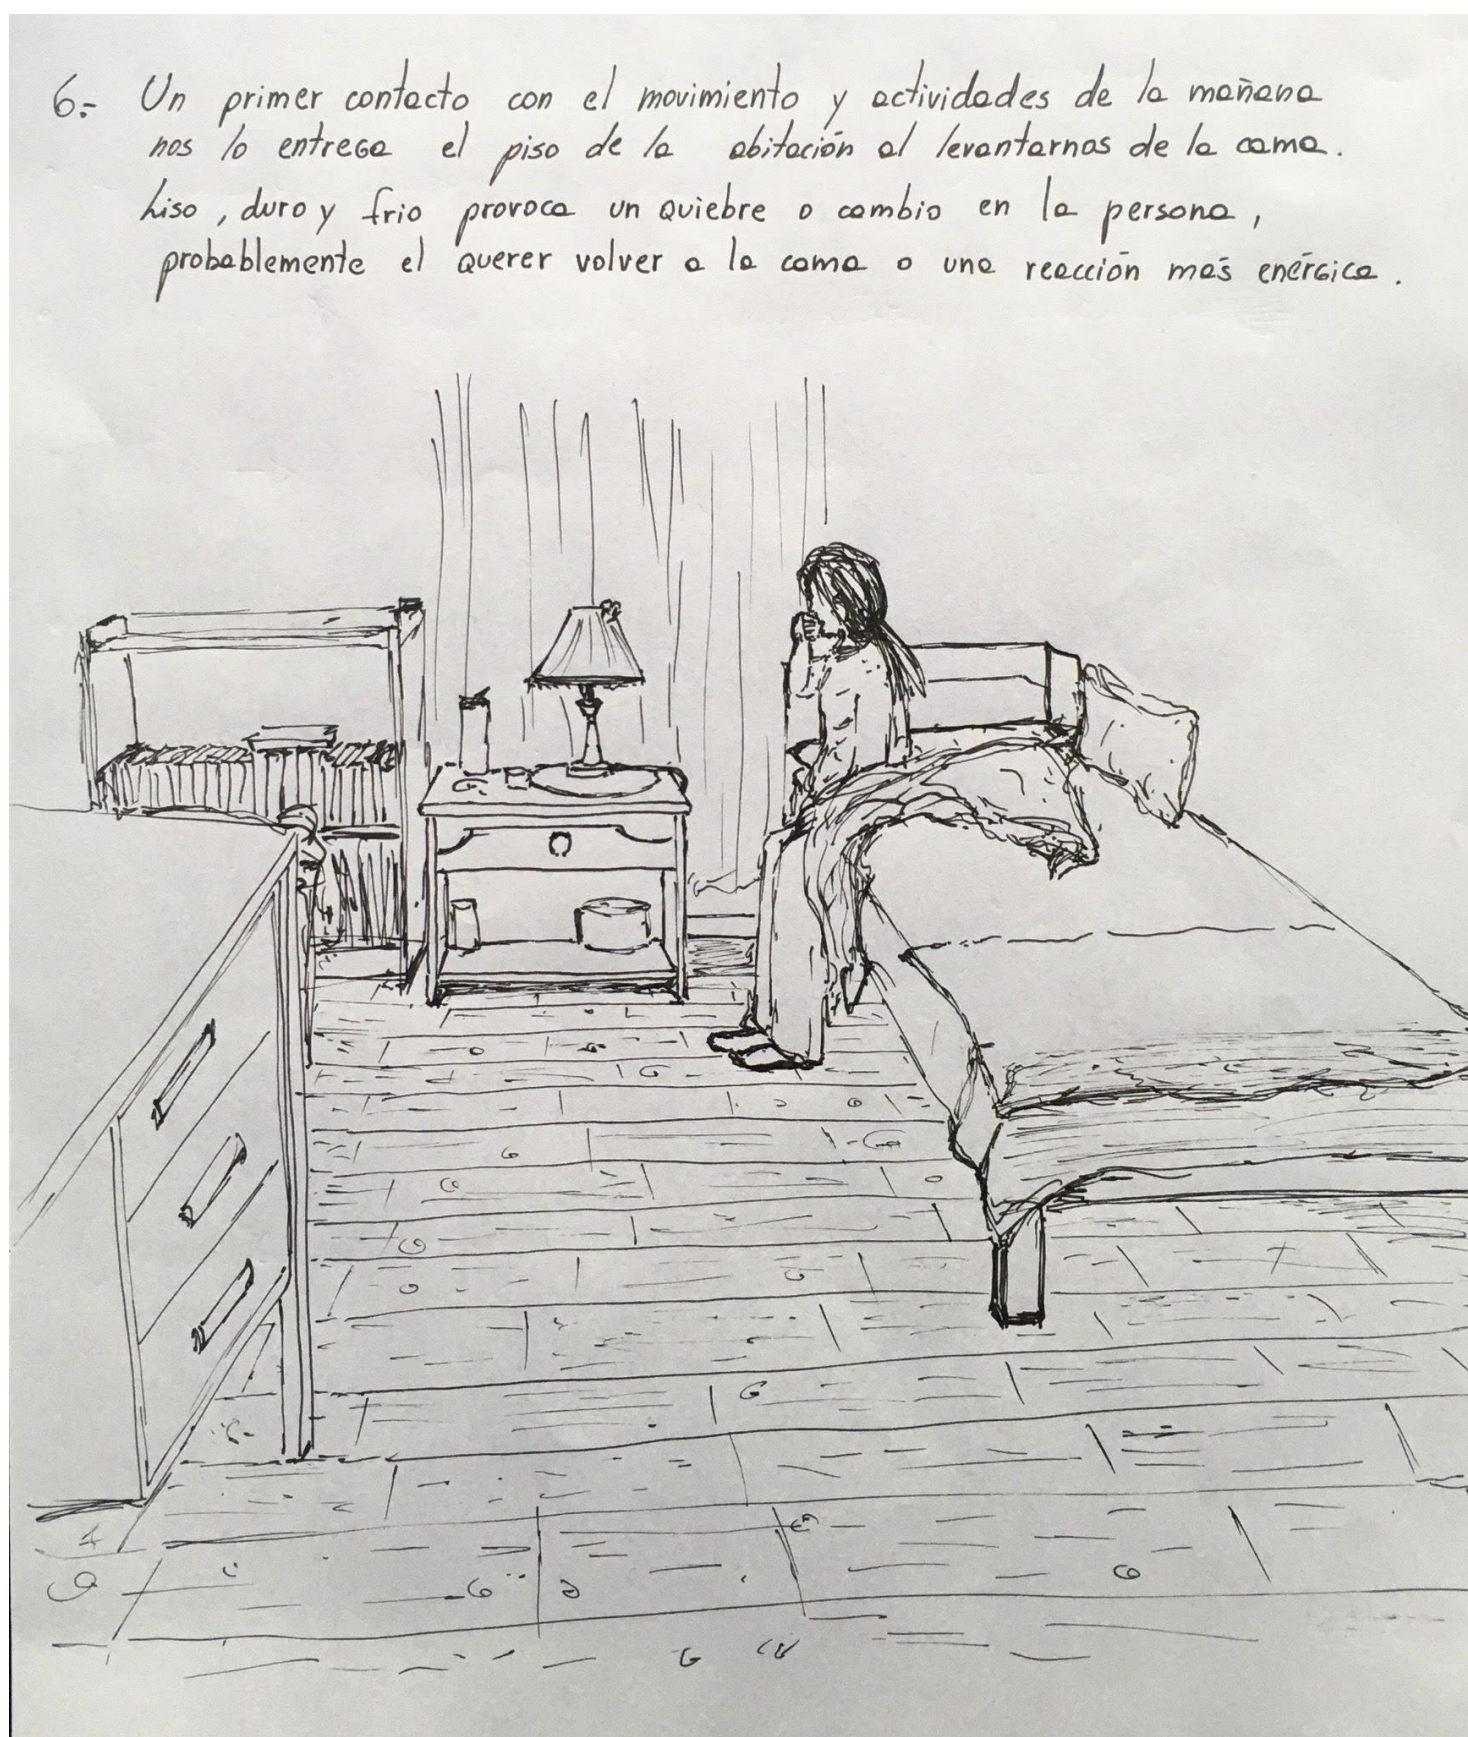 6.- Un primer contacto con el movimiento y actividades de la mañana
nos lo entrega el piso de la abitación al levantarnos de la cama.
Liso, duro y frio provoca un quiebre o cambio en la persona,
probablemente el querer volver a la cama o una reacción más enérgica.